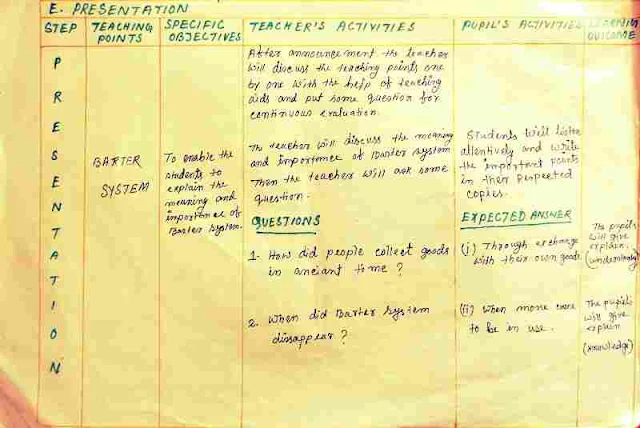 E. PRESENTATION
STEP
TEACHING
POINTS
SPECIFIC
OBJECTIVES
TEACHER'S ACTIVITIES
PUPIL'S ACTIVITIES
LEARNING
OUTCOME
P
R
E
S
E
N
T
A
T
I
O
N
BARTER
SYSTEM
To enable the
students to
explain the
meaning and
importance of
Barter System.
After announcement the teacher
will discuss the teaching points one
by one with the help of teaching
aids and put some question for
continuous evaluation.
The teacher will discuss the meaning
and importance of Barter System
Then the teacher will ask some
question.
QUESTIONS
1. How did people collect goods
in anciant time?
2. When did Barter System
dissappear?
Students will listen
attentively and write
the important points
in their Perpected
copies.
EXPECTED ANSWER
(i) Through exchange
with their own goods
(ii) When mone came
to be in use.
The pupils
will give
explain.
The pupils
will give
explain
(knowledge)